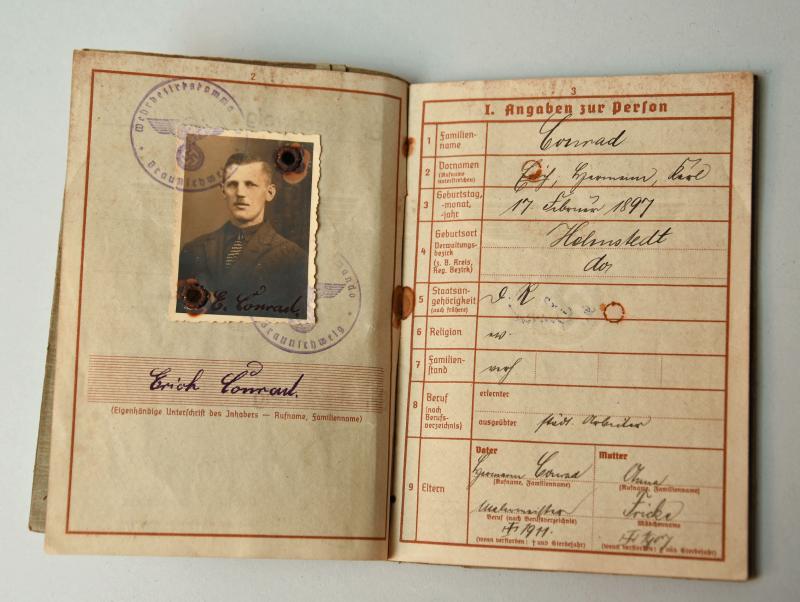 2
Wehrbezirkskommando
Braunschweig
E. Conrad
Braunschweig
Erich Conrad.
(Eigenhändige Unterschrift des Inhabers — Rufname, Familienname)
3
I. Angaben zur Person
1 Familien-
name
Conrad
2 Vornamen
(Rufname
unterstreichen)
Erich, Hermann, Karl
3 Geburtstag,
-monat,
-jahr
17. Februar 1897
4 Geburtsort
Verwaltungs-
bezirk
(z. B. Kreis,
Reg. Bezirk)
Helmstedt
do.
5 Staatsan-
gehörigkeit
(auch frühere)
D. R
6 Religion
ev.
7 Familien-
stand
verh
8 Beruf
(nach
Berufs-
verzeichnis)
erlernter
ausgeübter städt. Arbeiter
9 Eltern
Vater
Hermann Conrad
(Rufname, Familienname)
Malermeister
Beruf (nach Berufsverzeichnis)
† 1911.
(wenn verstorben: † und Sterbejahr)
Mutter
Anna
(Rufname, Familienname)
Fricke
Mädchenname
† 1907
(wenn verstorben: † und Sterbejahr)